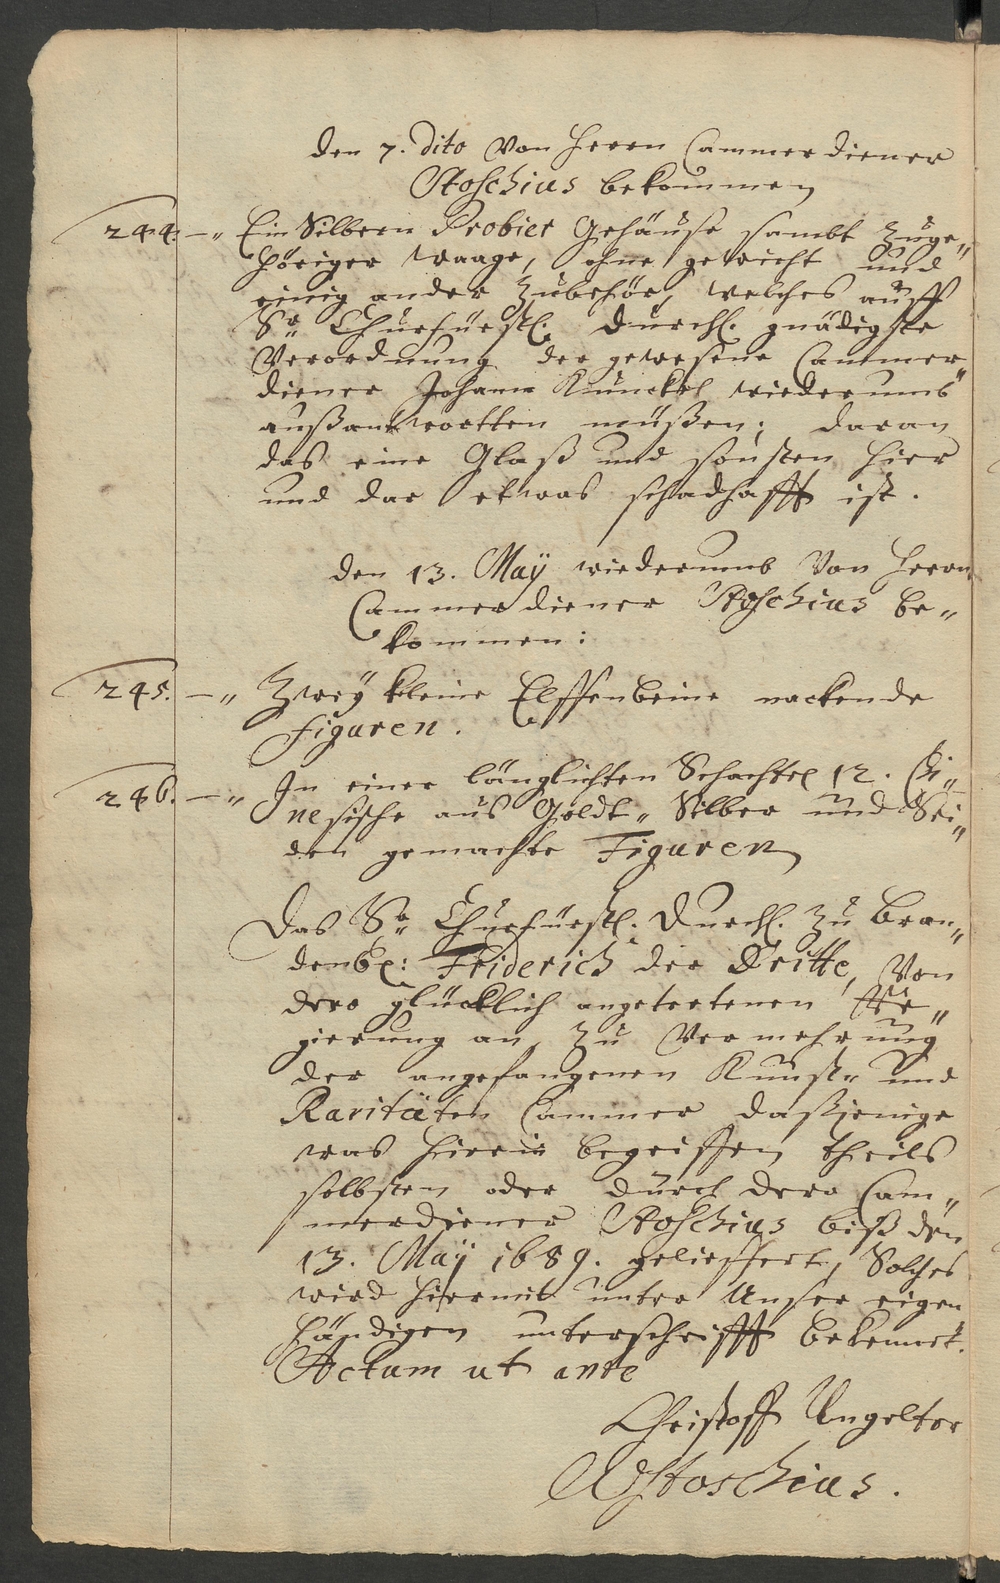 den 7. dito Von Herrn Cammerdiener
Stoschius bekommen
244. — „ Ein Silbern Probier Gehäuse sambt Zuge„
höriger waage, ohne gewicht und
einig ander Zubehör, welches auff
Sr Churfürstl. Durchl. gnädigste
Verordnung der gewesene Cammer„
diener Johann Kunckel wiederumb
außantwortten müßen; daran
das eine Glaß und sonsten hier
und dar etwas schadhafft ist.
den 13. Maÿ wiederumb Von Herrn
Cammerdiener Stoschius be„
kommen:
245. — „ Zweÿ kleine Elffenbeine nackende
figuren.
246. — „ In einer länglichten Schachtel 12. Chi„
nesische aus Goldt„ Silber und Sei„
den gemachte Figuren
Das Sr Churfürstl. Durchl. Zu Bran„
denb: Friderich der Dritte, Von
dero glücklich angetretenen Re„
gierung an, Zu Vermehrung
der angefangenen Kunst„ und
Raritäten Cammer dasjenige
was hierin begriffen theils
selbsten oder durch dero Cam„
merdiener Stoschius biß den
13. Maÿ 1689. geliessert, Solches
wird hiermit unter Unser eigen
händigen unterschrifft bekennet.
Actum ut ante
Christoff Ungelter
Stoschius.